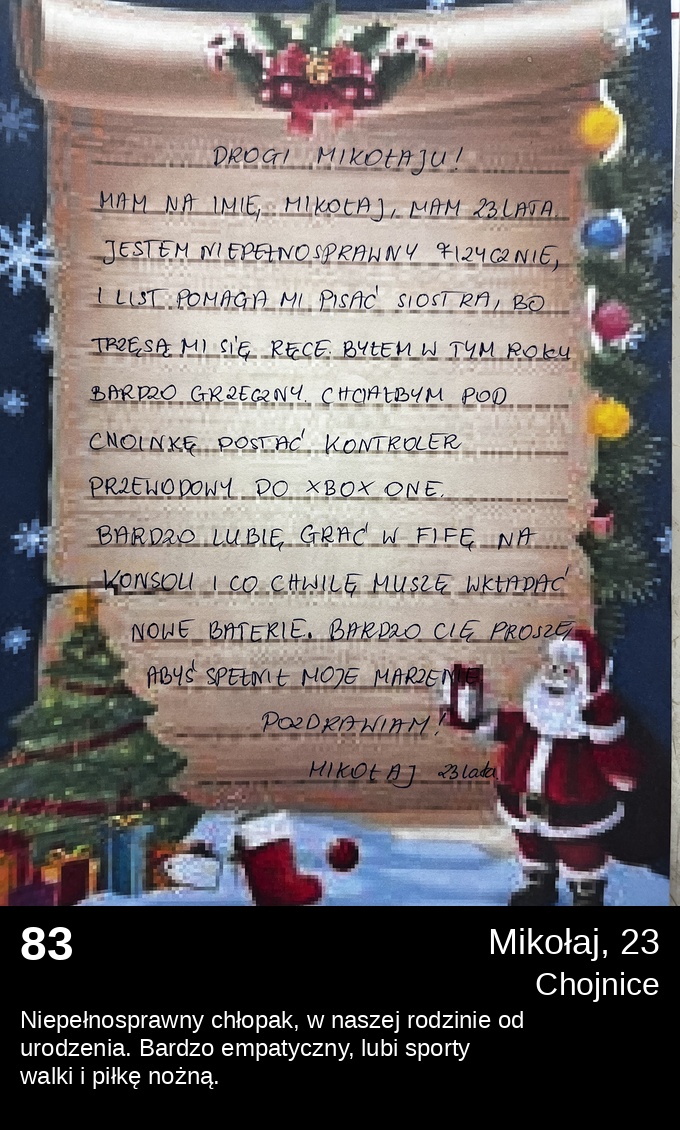 DROGI MIKOŁAJU!
MAM NA IMIĘ, MIKOŁAJ, MAM 23 LATA.
JESTEM NIEPEŁNOSPRAWNY FIZYCZNIE,
I LIST POMAGA MI PISAĆ SIOSTRA, BO
TRZĘSĄ MI SIĘ RĘCE. BYŁEM W TYM ROKU
BARDZO GRZECZNY. CHCIAŁBYM POD
CHOINKĘ DOSTAĆ KONTROLER
PRZEWODOWY DO XBOX ONE.
BARDZO LUBIĘ GRAĆ W FIFĘ NA
KONSOLI I CO CHWILĘ MUSZĘ WKŁADAĆ
NOWE BATERIE. BARDZO CIĘ PROSZĘ,
ABYŚ SPEŁNIŁ MOJE MARZENIE
POZDRAWIAM!
MIKOŁAJ 23 lata
83
Mikołaj, 23
Chojnice
Niepełnosprawny chłopak, w naszej rodzinie od
urodzenia. Bardzo empatyczny, lubi sporty
walki i piłkę nożną.